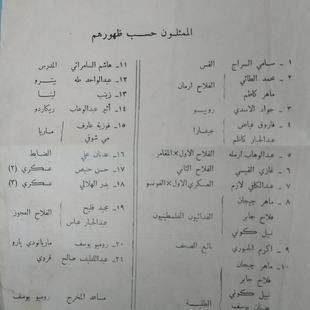 الممثلون حسب ظهورهم
١ - سامي السراج القس
٢ - محمد الطائي
ماهر كاظم
الفلاح ارمان
٣ - جواد الاسدي روبيسو
٤ - فاروق فياض
عبدالجبار كاظم
جيفارا
٥ - عبدالوهاب ارمله الفلاح الاول × المقامر
٦ - غازي القيسي الفلاح الثاني
٧ - عبدالكافي لازم العسكري الاول × الفونسو
٨ - ماهر جيجان
فلاح جابر
نبيل كوني
الفدائيون الفلسطينيون
٩ - اكرم بائع الصحف
١٠ - ماهر جيجان
فلاح جابر
نبيل كوني
عدنان يوسف
الطلبة
١١ - هاشم السامرائي المدرس
١٢ - عبدالواحد طه بيترو
١٣ - زينب لينا
١٤ - أثير عبدالوهاب ريكاردو
١٥ - فوزية عارف
مي شوقي
ماريا
١٦ - عدنان علي الضابط
١٧ - حسن عسكري (٢)
١٨ - بدر الهلالي عسكري (٣)
١٩ - محمد فليح
عبدالجبار عباس
الفلاح العجوز
٢٠ - روميو يوسف ماريانودي يارو
٢١ - عبداللطيف صالح قردي
مساعد المخرج روميو يوسف